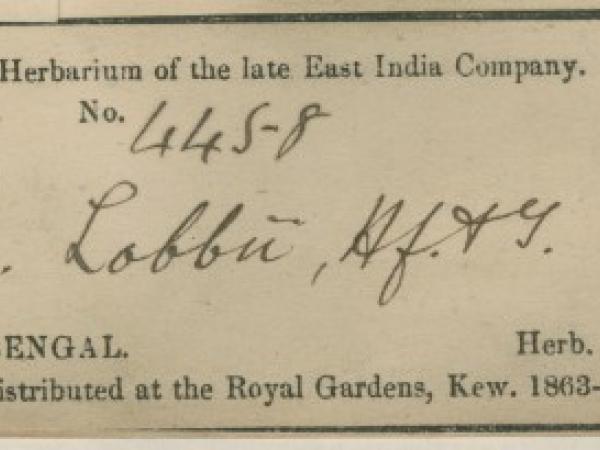 Herbarium of the late East India Company.
No. 4458
. Lobbii, Hf. & T.
BENGAL. Herb.
istributed at the Royal Gardens, Kew. 1863-